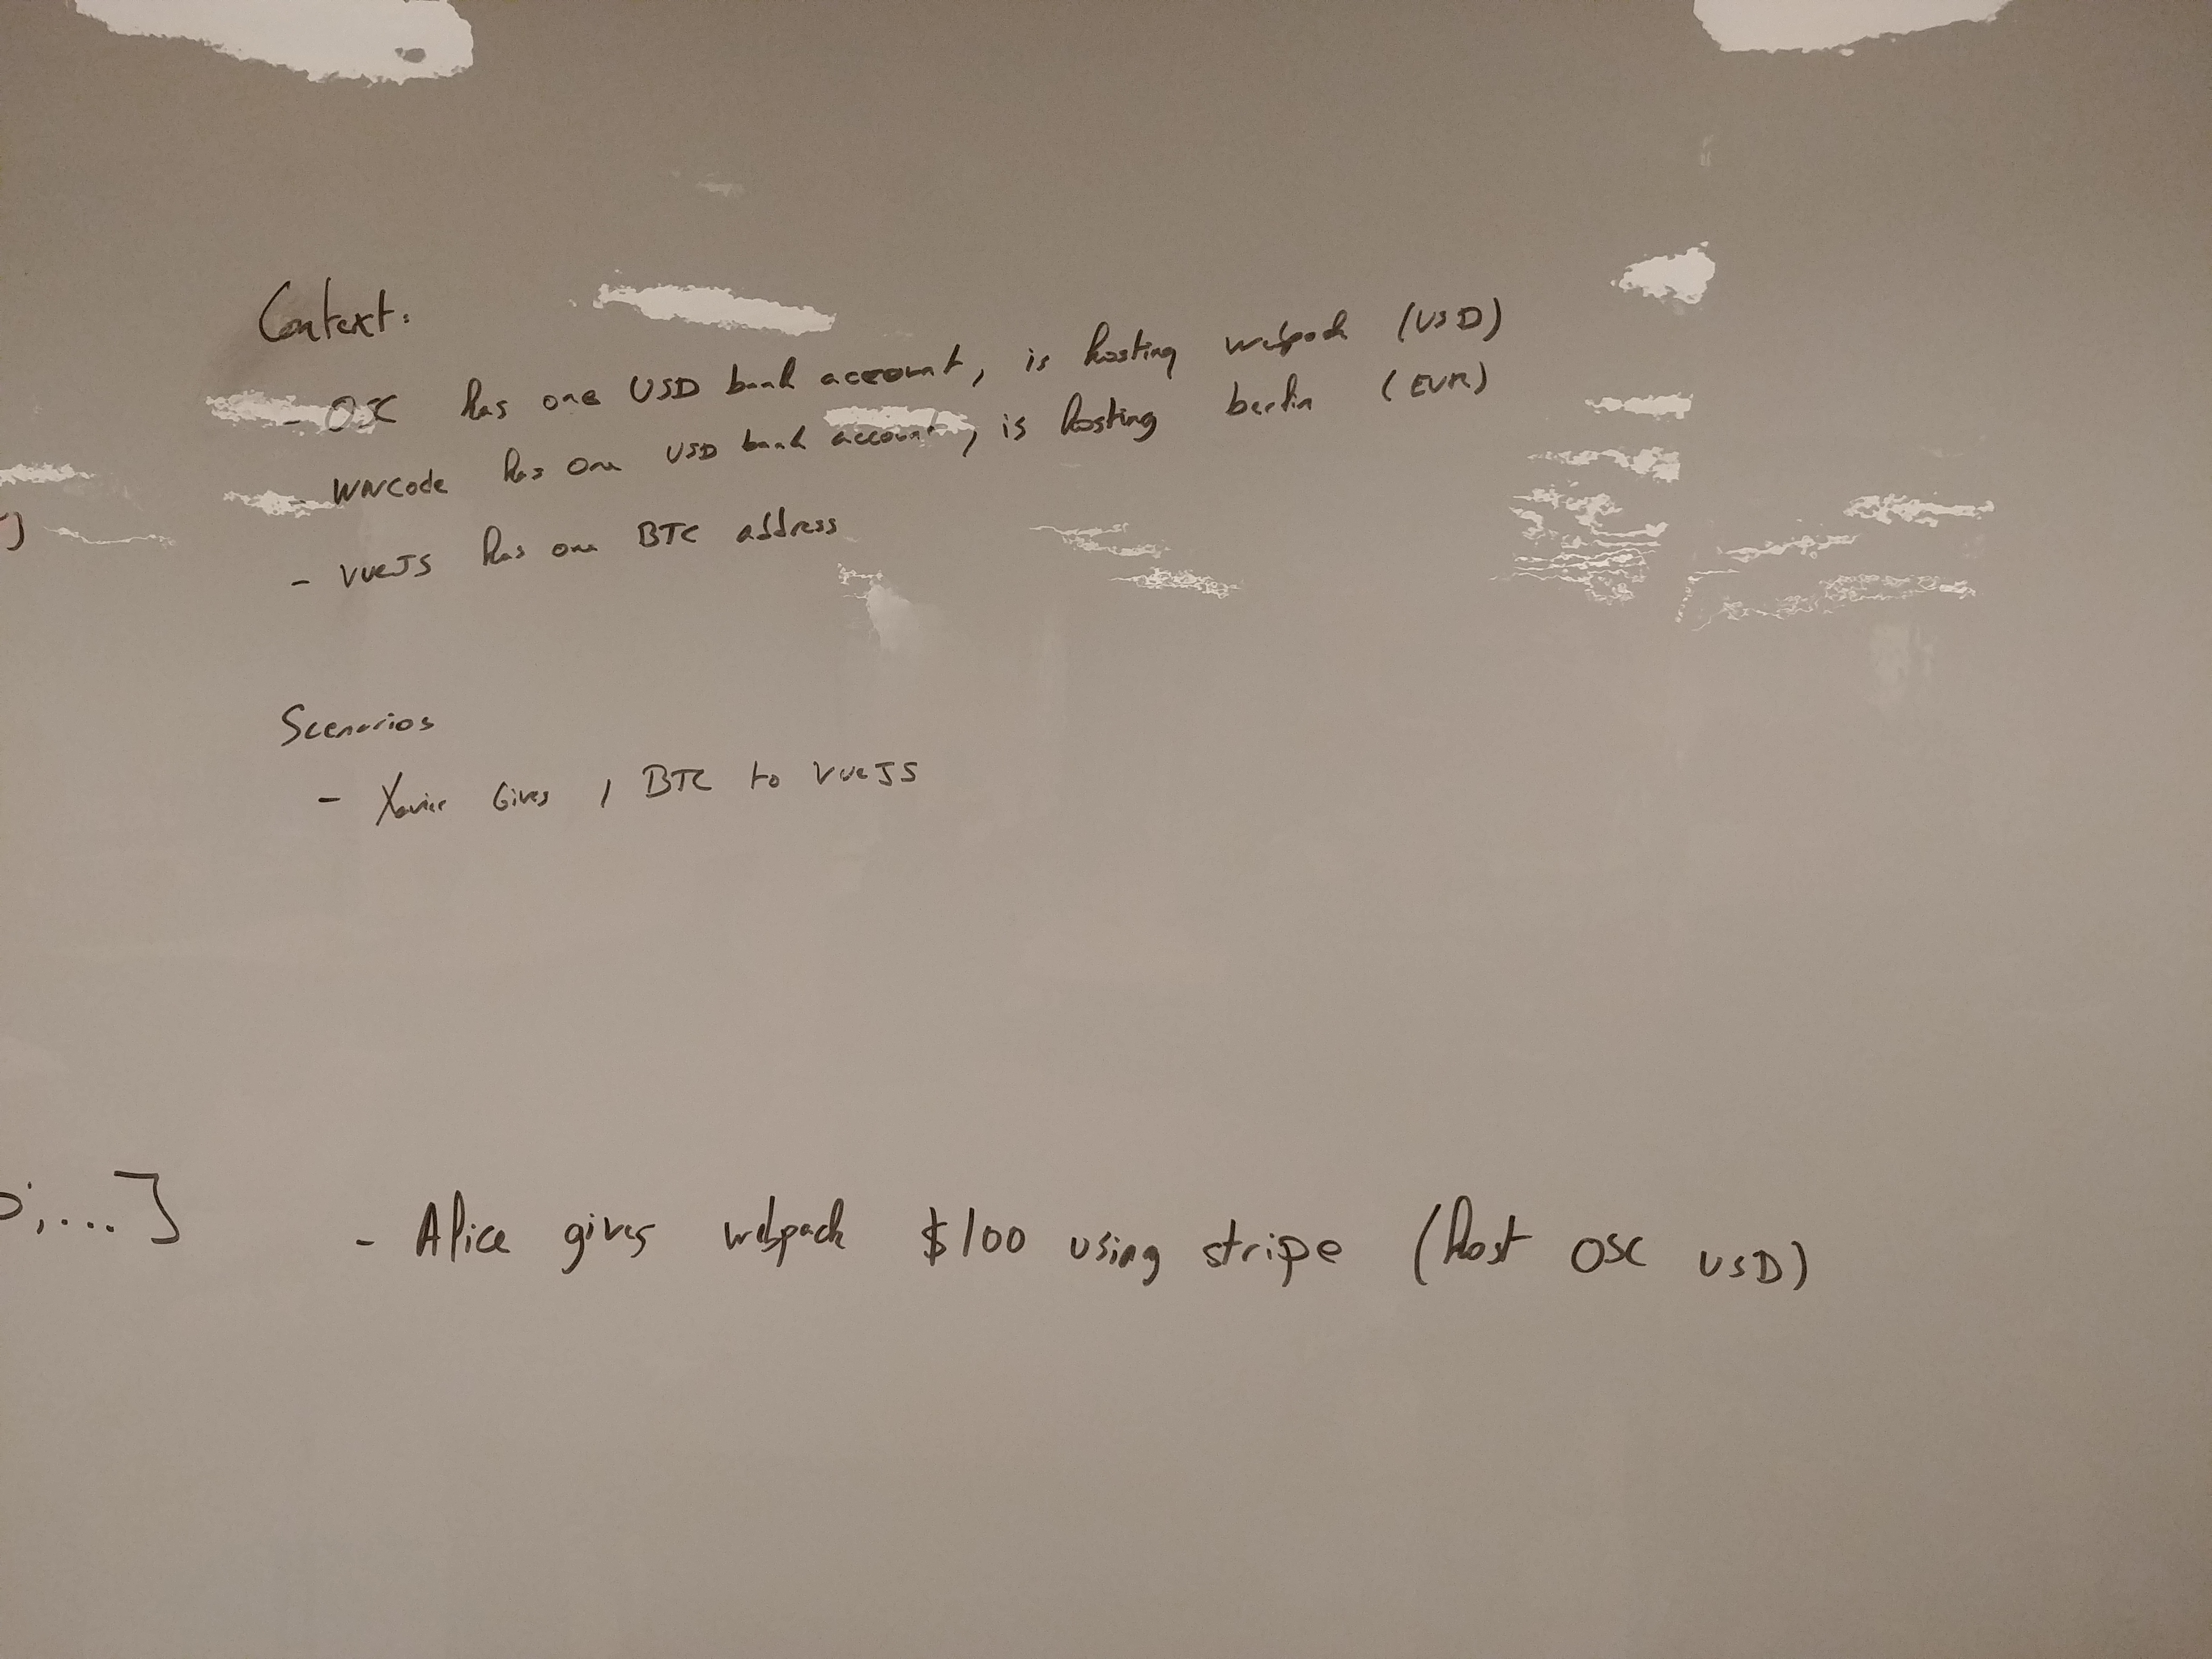 Context:
- OSC has one USD bank account, is hosting webpack (USD)
- WWCode has one USD bank account, is hosting berlin (EUR)
- VueJS has one BTC address
Scenarios
- Xavier Gives 1 BTC to VueJS
,...]
- Alice gives webpack $100 using stripe (host OSC USD)